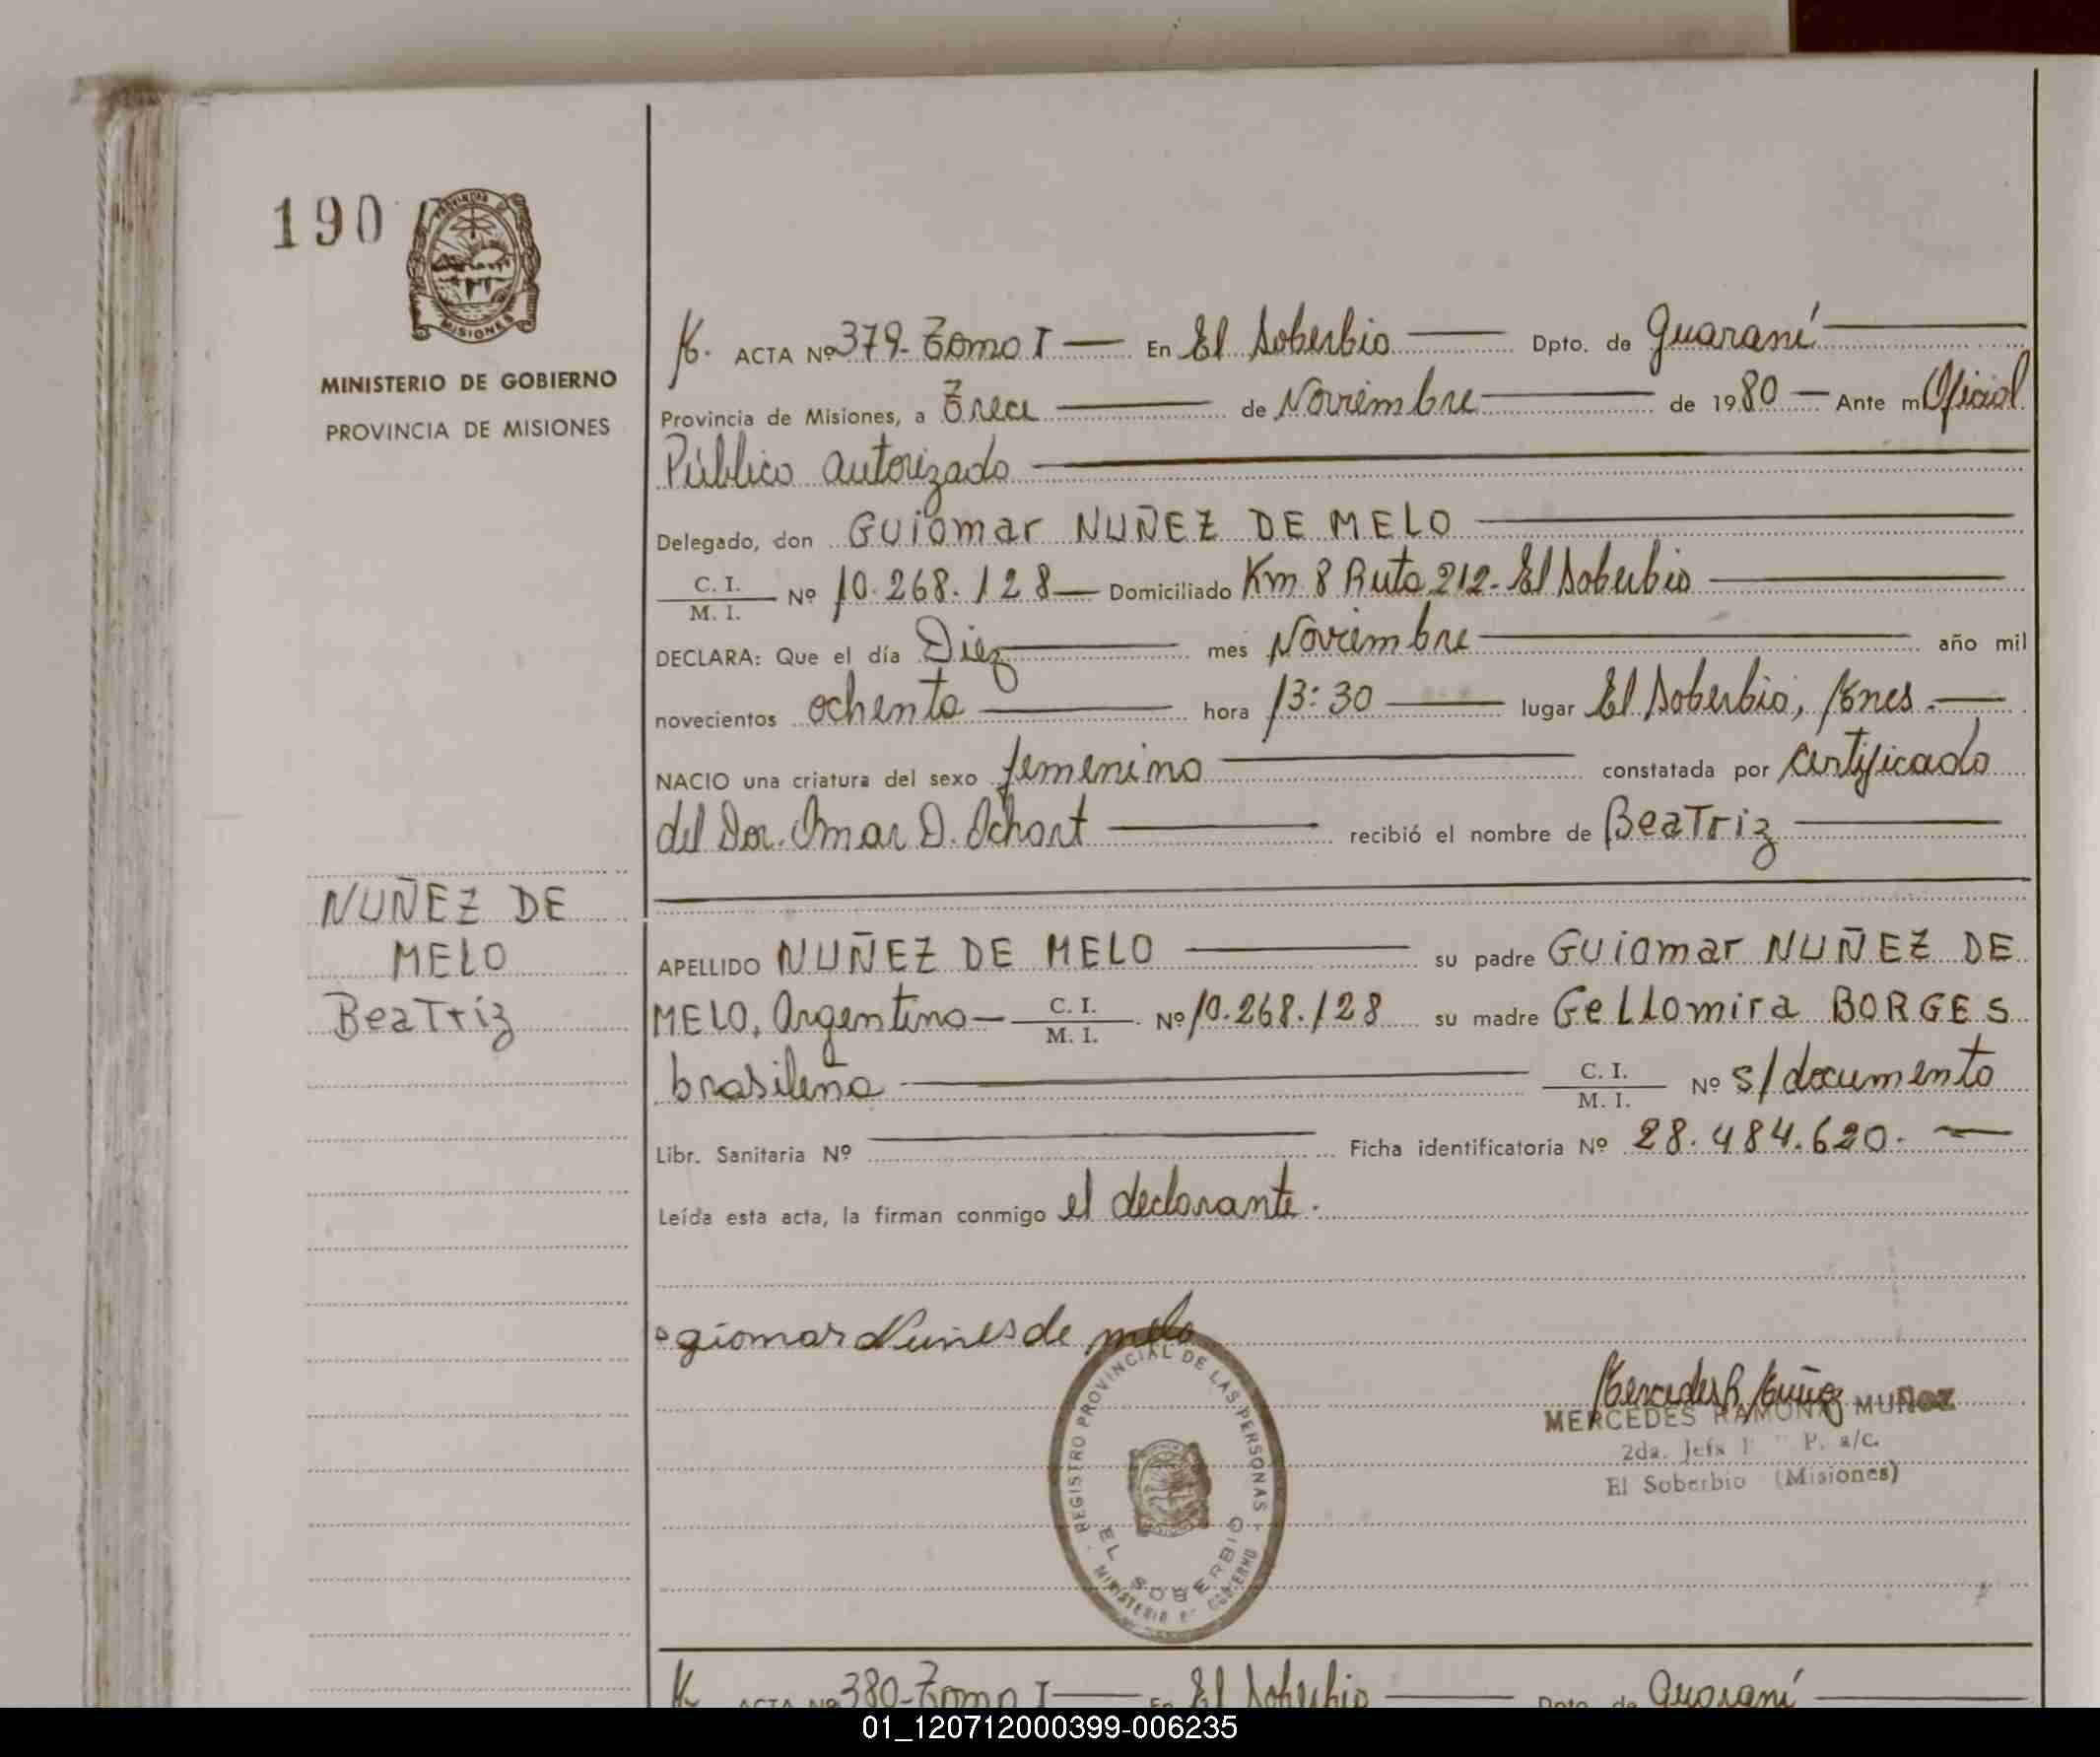 190
PROVINCIA DE
MISIONES
MINISTERIO DE GOBIERNO
PROVINCIA DE MISIONES
NUÑEZ DE
MELO
BeaTriz
K. ACTA Nº 379- Tomo I — En El Soberbio — Dpto. de Guaraní —
Provincia de Misiones, a Trece — de Noviembre — de 1980 — Ante mí Oficial
Público autorizado —
Delegado, don Guiomar NUÑEZ DE MELO —
C. I.
M. I. Nº 10.268.128 — Domiciliado Km. 8 Ruta 212- El Soberbio —
DECLARA: Que el día Diez — mes Noviembre — año mil
novecientos ochenta — hora 13:30 — lugar El Soberbio, Mnes. —
NACIO una criatura del sexo femenino — constatada por certificado
del Dor. Omar D. — recibió el nombre de BeaTriz —
APELLIDO NUÑEZ DE MELO — su padre Guiomar NUÑEZ DE
MELO, Argentino — C. I.
M. I. Nº 10.268.128 su madre GeLLomira BORGES
brasileña — C. I.
M. I. Nº s/documento
Libr. Sanitaria Nº — Ficha identificatoria Nº 28.484.620. —
Leída esta acta, la firman conmigo el declarante.
giomar Nunes de melo
Mercedes R. Muñoz
MERCEDES RAMONA MUÑOZ
2da. Jefa P. a/c.
El Soberbio (Misiones)
REGISTRO PROVINCIAL DE LAS PERSONAS
EL SOBERBIO
MINISTERIO DE GOBIERNO
K. ACTA Nº 380- Tomo I — En El Soberbio — Dpto. de Guaraní —
01_120712000399-006235